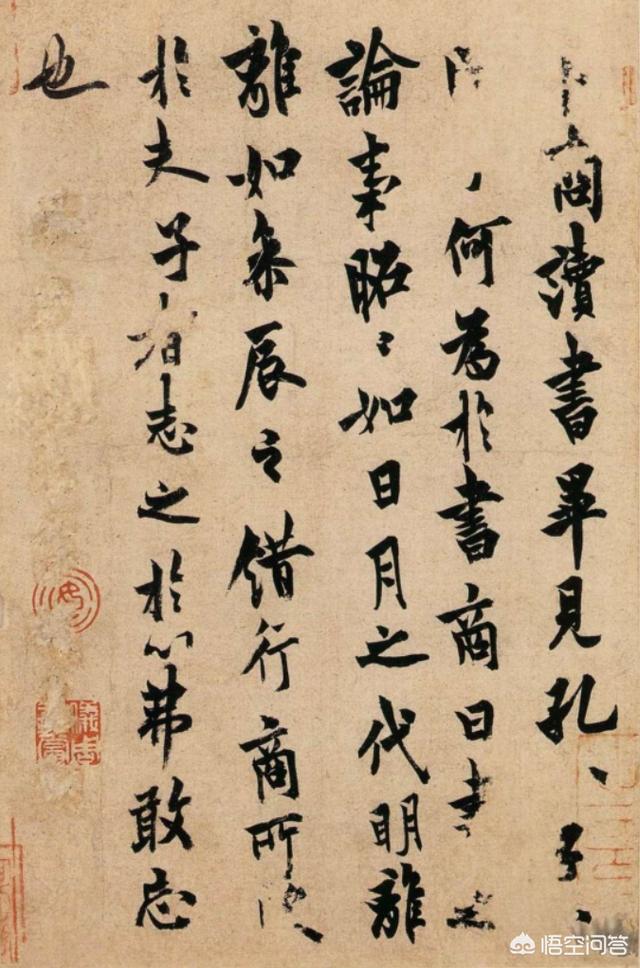 卜商讀書畢見孔〻子〻
何為於書商曰書之
論事昭〻如日月之代明離
離如參辰之錯行商所受
於夫子者志之於心弗敢忘
也
悟空问答